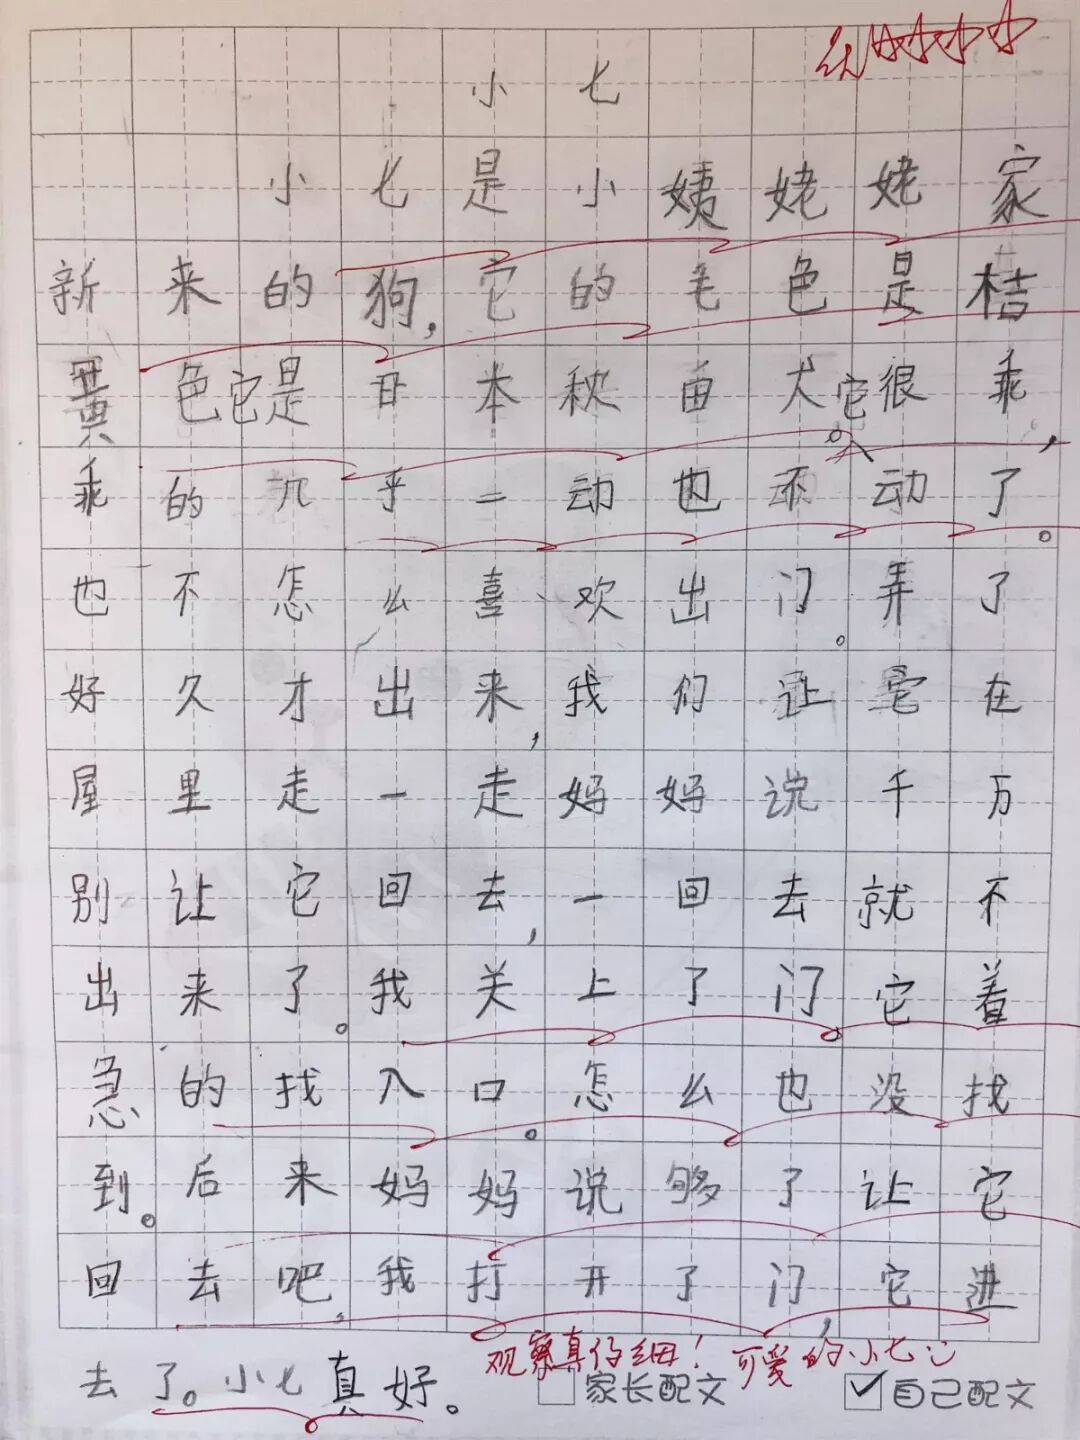 优☆☆☆☆
小七
小七是小姨姥姥家
新来的狗，它的毛色是桔
黄色它是日本秋田犬。它很乖，
乖的几乎一动也不动了。
也不怎么喜欢出门。弄了
好久才出来，我们让它在
屋里走一走妈妈说千万
别让它回去，一回去就不
出来了。我关上了门。它着
急的找入口。怎么也没找
到。后来妈妈说够了让它
回去吧，我打开了门，它进
去了。小七真好。
观察真仔细！可爱的小七
家长配文 自己配文